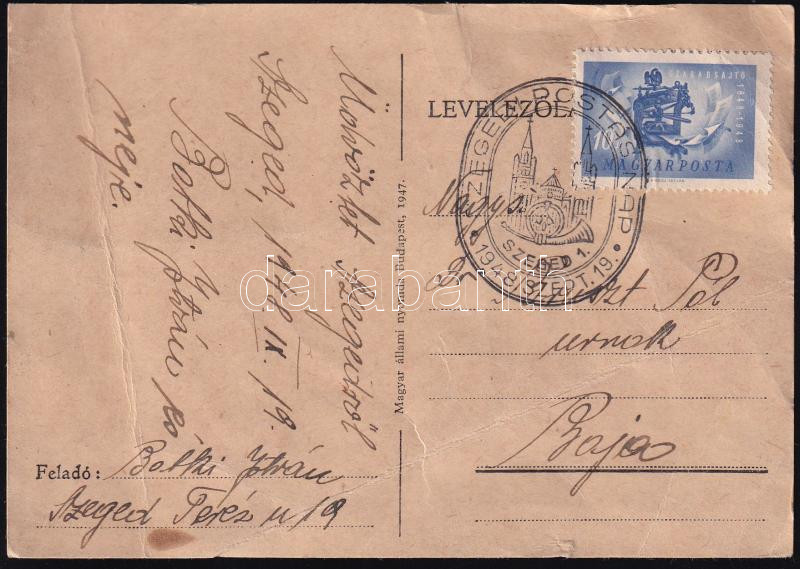 LEVELEZŐLAP
SZABADSAJTÓ
1848-1948
10
MAGYAR POSTA
SZEGEDI POSTÁS NAP
SZEGED 1.
1948 SZEPT. 19.
Nagys.
Pál
urnak
Baja
Üdvözlet Szegedről
Szeged, 1948. IX. 19.
István
neje.
Magyar állami nyomda Budapest, 1947.
Feladó: Botki István
Szeged Teréz u 19
darabanth.com